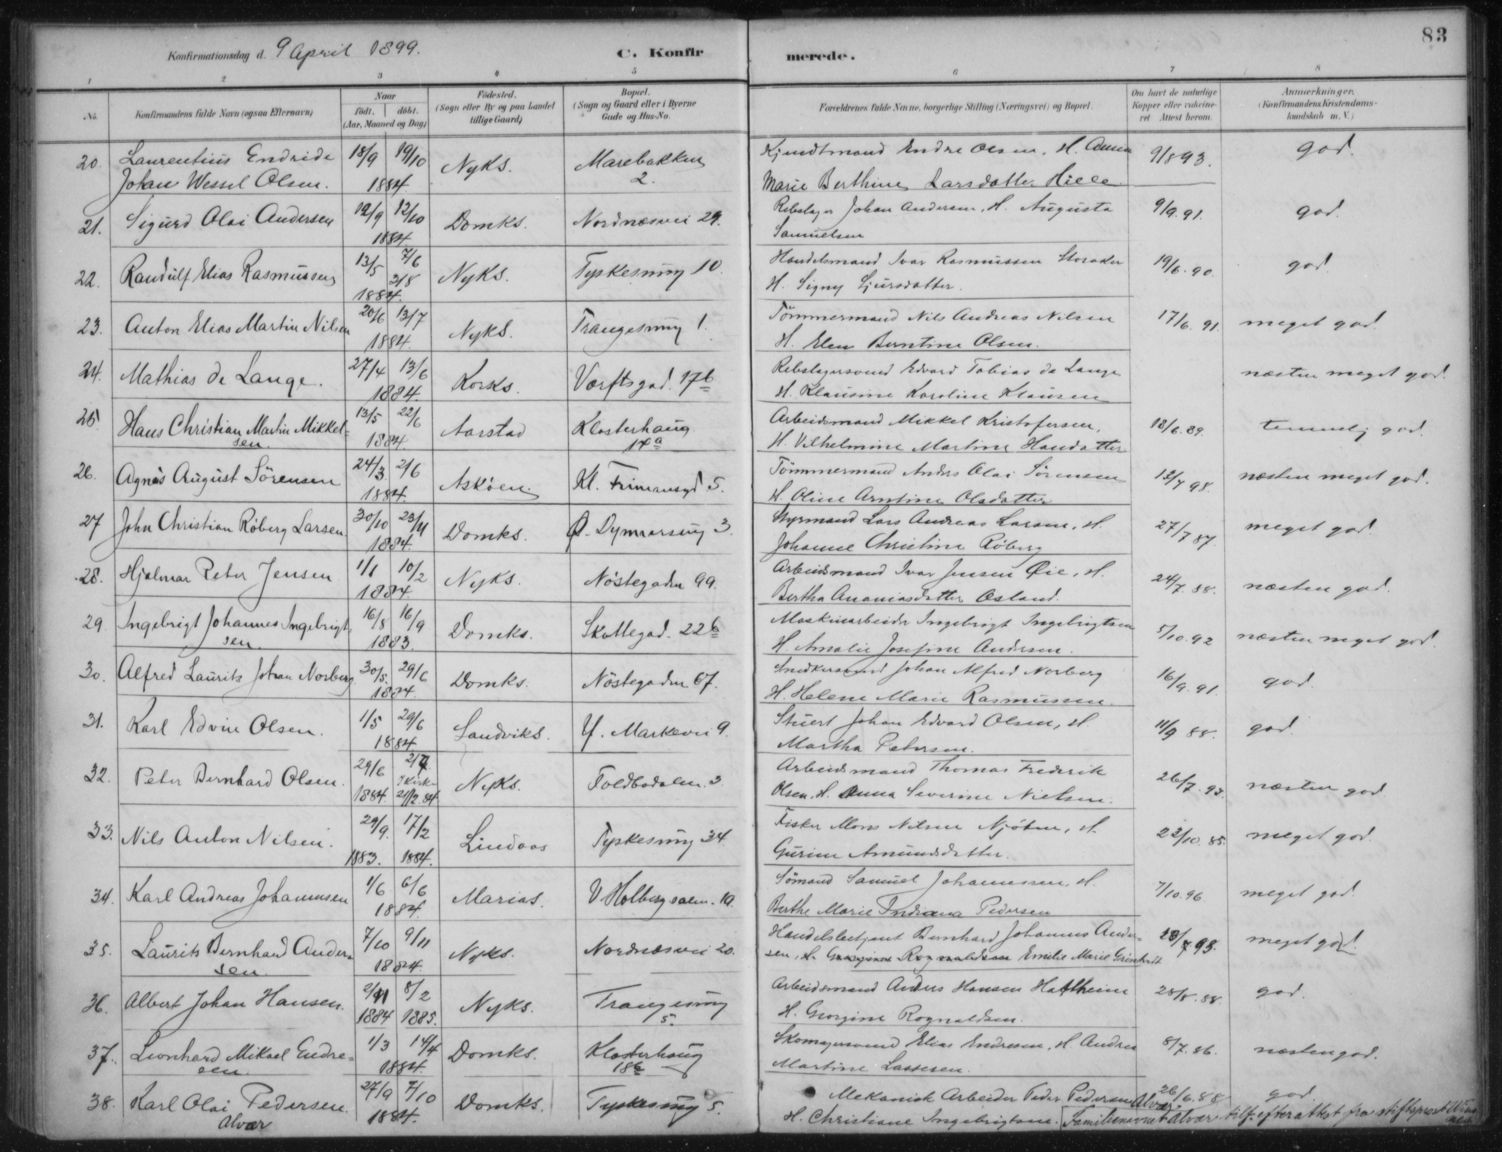 83
Konfirmationsdag d. 9 April 1899.
C. Konfirmerede.
1 2 3 4 5 6 7 8
No. Konfirmandens fulde Navn (ogsaa Efternavn) Naar født. døbt. (Aar, Maaned og Dag) Fødested. (Sogn eller By og paa Landet tillige Gaard) Bopæl. (Sogn og Gaard eller i Byerne Gade og Hus-No. Forældrenes fulde Navne, borgerlige Stilling (Næringsvei) og Bopæl. Om havt de naturlige Kopper eller vaccineret Attest herom. Anmerkninger. (Konfirmandens Kristendomskundskab m. V.)
20. Laurentius Endride 18/9 19/10 Nyks. Marebakken Endre Olsen, H. Anna 9/8 93. god.
Johan Wessel Olsen. 1884 2. Marie Berthine Larsdatter Hille
21. Sigurd Olai Andersen 12/9 12/10 Domks. Nordnæsvei 29. Rebslager Johan Andersen, H. Augusta 9/9. 91. god.
1884 Samuelsen
22. Randulf Elias Rasmussen 13/5 7/6 Nyks. Tyskesmug 10. Handelsmand Ivar Rasmussen 19/6. 90. god
3/8 1884. H. Signy Sjursdatter.
23. Anton Elias Martin Nilsen 20/6 13/7 Nyks. Trangesmug 1. Tømmermand Nils Andreas Nilsen 17/6. 91. meget god.
1884. H. Elen Berntine Olsen.
24. Mathias de Lange. 27/4 13/6 Korsks. Værftsgad. 17b Rebslagersvend Edvard Tobias de Lange næsten meget god.
1884. H. Klausine Karoline Klausen
25. Hans Christian Martin Mikkel- 13/5 22/6 Aarstad Klosterhaug Arbeidsmand Mikkel Kristofersen, 18/6. 89. temmelig god.
sen. 1884. 17a H. Vilhelmine Martine Hansdatter
26. Agnes August Sørensen 24/3 2/6 Askøen. Kl. Frimansgd 5. Tømmermand Anders Olai Sørensen 12/7 98. næsten meget god.
1884. H. Oline Arntine Olsdatter
27 John Christian Røberg Larsen. 30/10 23/11 Domks. Ø. Dymarsmug 3. Styrmand Lars Andreas Larsen, H. 27/7 87. meget god
1884. Johanne Christine Røberg
28. Hjalmar Peter Jensen 1/1 10/2 Nyks. Nøstegaden 99. Arbeidsmand Ivar Jensen Øie, H. 24/7. 88. næsten god.
1884. Bertha Ananiasdatter Østand.
29. Ingebrigt Johannes Ingebrigt- 16/8 16/9 Domks. Skottegad. 22b Maskinarbeider Ingebrigt Ingebrigtsen 5/10. 92 næsten meget god.
sen. 1883. H. Amalie Josefine Andersen.
30. Alfred Laurits Johan Norberg 30/5. 29/6 Domks. Nøstegaden 67. Snedkersvend Johan Alfred Norberg 16/9. 91. god.
1884 H. Helene Marie Rasmussen.
31. Karl Edvin Olsen. 1/5 29/6 Sandviks. Y. Markevei 9. Stuert Johan Edvard Olsen, H. 11/9 88. god.
1884 Martha Petersen.
32. Peter Bernhard Olsen. 29/6 2/7. Nyks. Toldbodalm. 3. Arbeidsmand Thomas Frederik 26/7. 93. næsten god
1884. 21/12. 84 Olsen, H. Anna Severine Nielsen.
33. Nils Anton Nilsen. 29/9. 17/2 Lindaas Tyskesmug 34 Fisker Mons Nilsen, H. 22/10. 85. meget god.
1883. 1884. Gurine Amundsdatter.
34. Karl Andreas Johannessen 1/6 6/6 Marias. V. Holbergsalm. 19. Sømand Samuel Johannessen, H. 7/10. 96 meget god.
1884. Berthe Marie Indiana Pedersen
35. Laurits Bernhard Ander- 7/10 9/11 Nyks. Nordnæsvei 20. Handelsbetjent Bernhard Johannes Ander- 18/7 95. meget god.
sen. 1884. sen, H. Emilie Marie
36. Albert Johan Hansen. 2/11 8/2 Nyks. Trangesmug Arbeidsmand Anders Hansen 28/8. 88. god.
1884 1885. 5. H. Georgine Rognaldsen.
37. Leonhard Mikael Endre- 1/3 14/4 Domks. Klosterhaug Skomagersvend Elias Endresen, H. Andrea 8/7. 86. næsten god.
sen. 1884. 18c Martine Lassesen.
38. Karl Olai Pedersen. 27/9 7/10 Domks. Tyskesmug 5. Mekanisk Arbeider Peder Pedersen Alvær 26/6. 88 god.
Alvær 1884. H. Christiane Ingebrigtsen. [Familienavnet Alvær tilf. efter attest fra stiftsprost